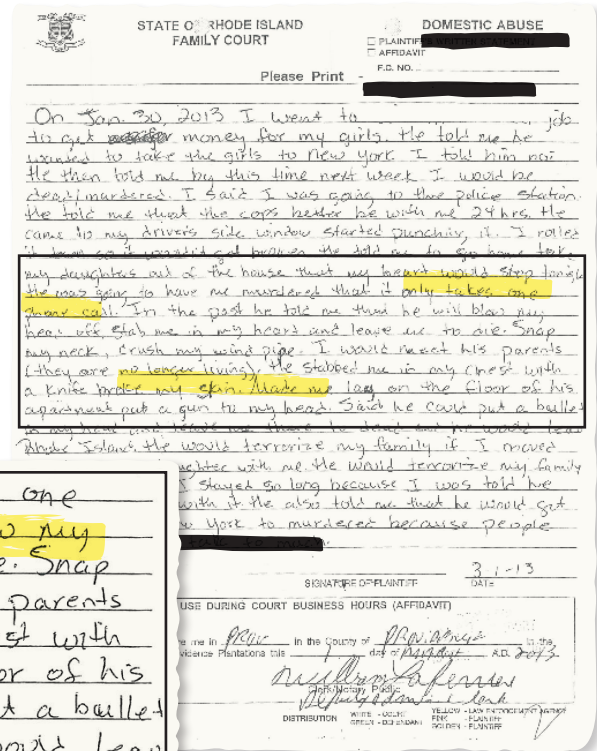 STATE OF RHODE ISLAND
FAMILY COURT
DOMESTIC ABUSE
PLAINTIFF
AFFIDAVIT
F.C. NO.
Please Print -
On Jan. 30, 2013 I went to job
to get money for my girls. He told me he
wanted to take the girls to New York I told him no.
He then told me by this time next week I would be
dead/murdered. I said I was going to the police station.
He told me that the cops better be with me 24 hrs. He
came to my drivers side window started punching it. I rolled
it down so it wouldn't get broken He told me to go home take
my daughters out of the house that my heart would stop tonight
He was going to have me murdered that it only takes one
phone call. In the past he told me that he will blow my
head off, stab me in my heart and leave me to die. Snap
my neck, crush my wind pipe. I would meet his parents
(they are no longer living). He stabbed me in my chest with
a knife broke my skin. Made me lay on the floor of his
apartment put a gun to my head. Said he could put a bullet
in my head and leave me there
Rhode Island. He would terrorize my family if I moved
with me. He would terrorize my family
I stayed so long because I was told he
with it He also told me that he would get
York to murdered because people
3-1-13
SIGNATURE OF PLAINTIFF
DATE
USE DURING COURT BUSINESS HOURS (AFFIDAVIT)
me in Prov in the County of Providence in the
Providence Plantations this 1 day of A.D. 2013
Clerk/Notary Public
DISTRIBUTION
WHITE - COURT
GREEN - DEFENDANT
YELLOW - LAW ENFORCEMENT AGENCY
PINK - PLAINTIFF
GOLDEN - PLAINTIFF
one
my
Snap
parents
with
of his
t a bullet